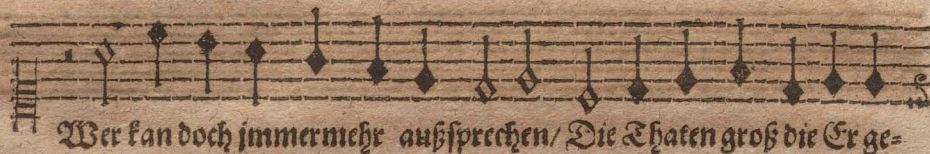 Wer kan doch jmmermehr außsprechen/ Die Thaten groß die Er ge=